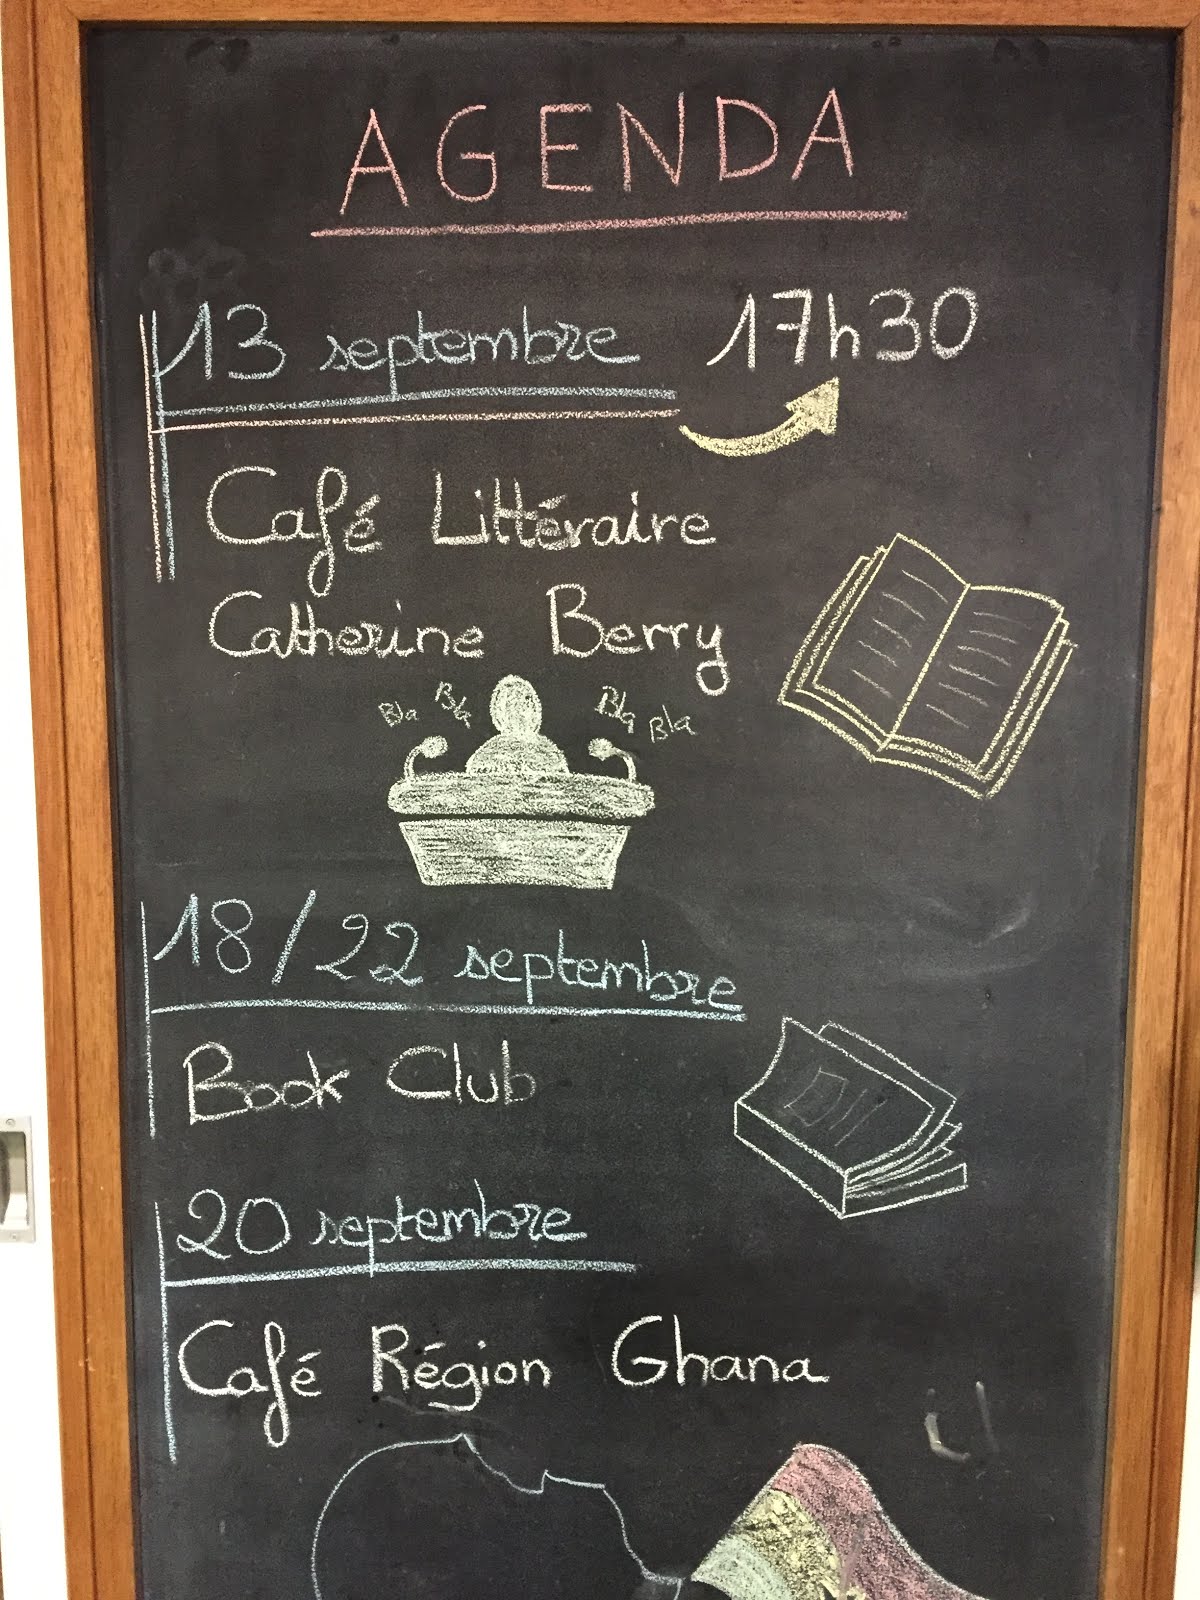 AGENDA
13 septembre 17h30
Café Littéraire
Catherine Berry
Bla Bla Bla Bla
18/22 septembre
Book Club
20 septembre
Café Région Ghana